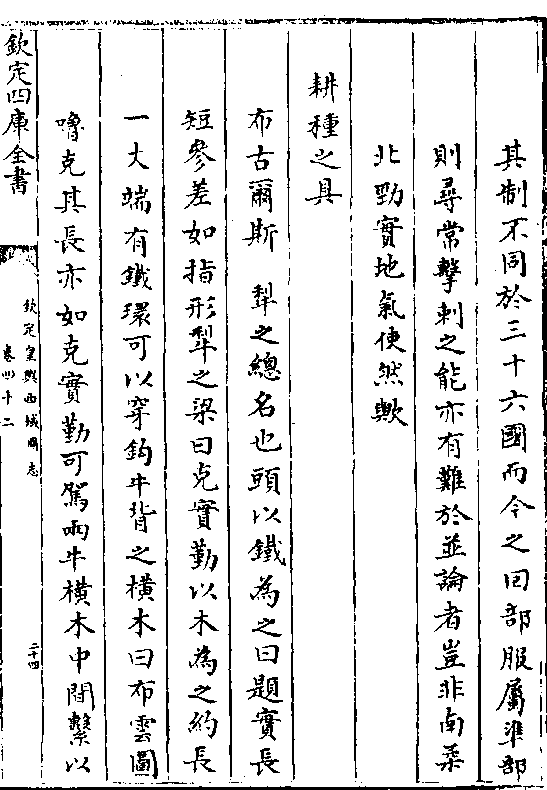 其制不同於三十六國而今之回部服屬準部
則尋常擊刺之能亦有難於並論者豈非南柔
北勁實地氣使然歟
耕種之具
布古爾斯 犁之總名也頭以鐵為之曰題實長
短參差如指形犁之梁曰克實勤以木為之約長
一丈端有鐵環可以穿鈎牛背之橫木曰布雲圖
嚕克其長亦如克實勤可駕兩牛橫木中間繫以
欽定四庫全書
欽定皇輿西域圖志
卷四十二
二十四